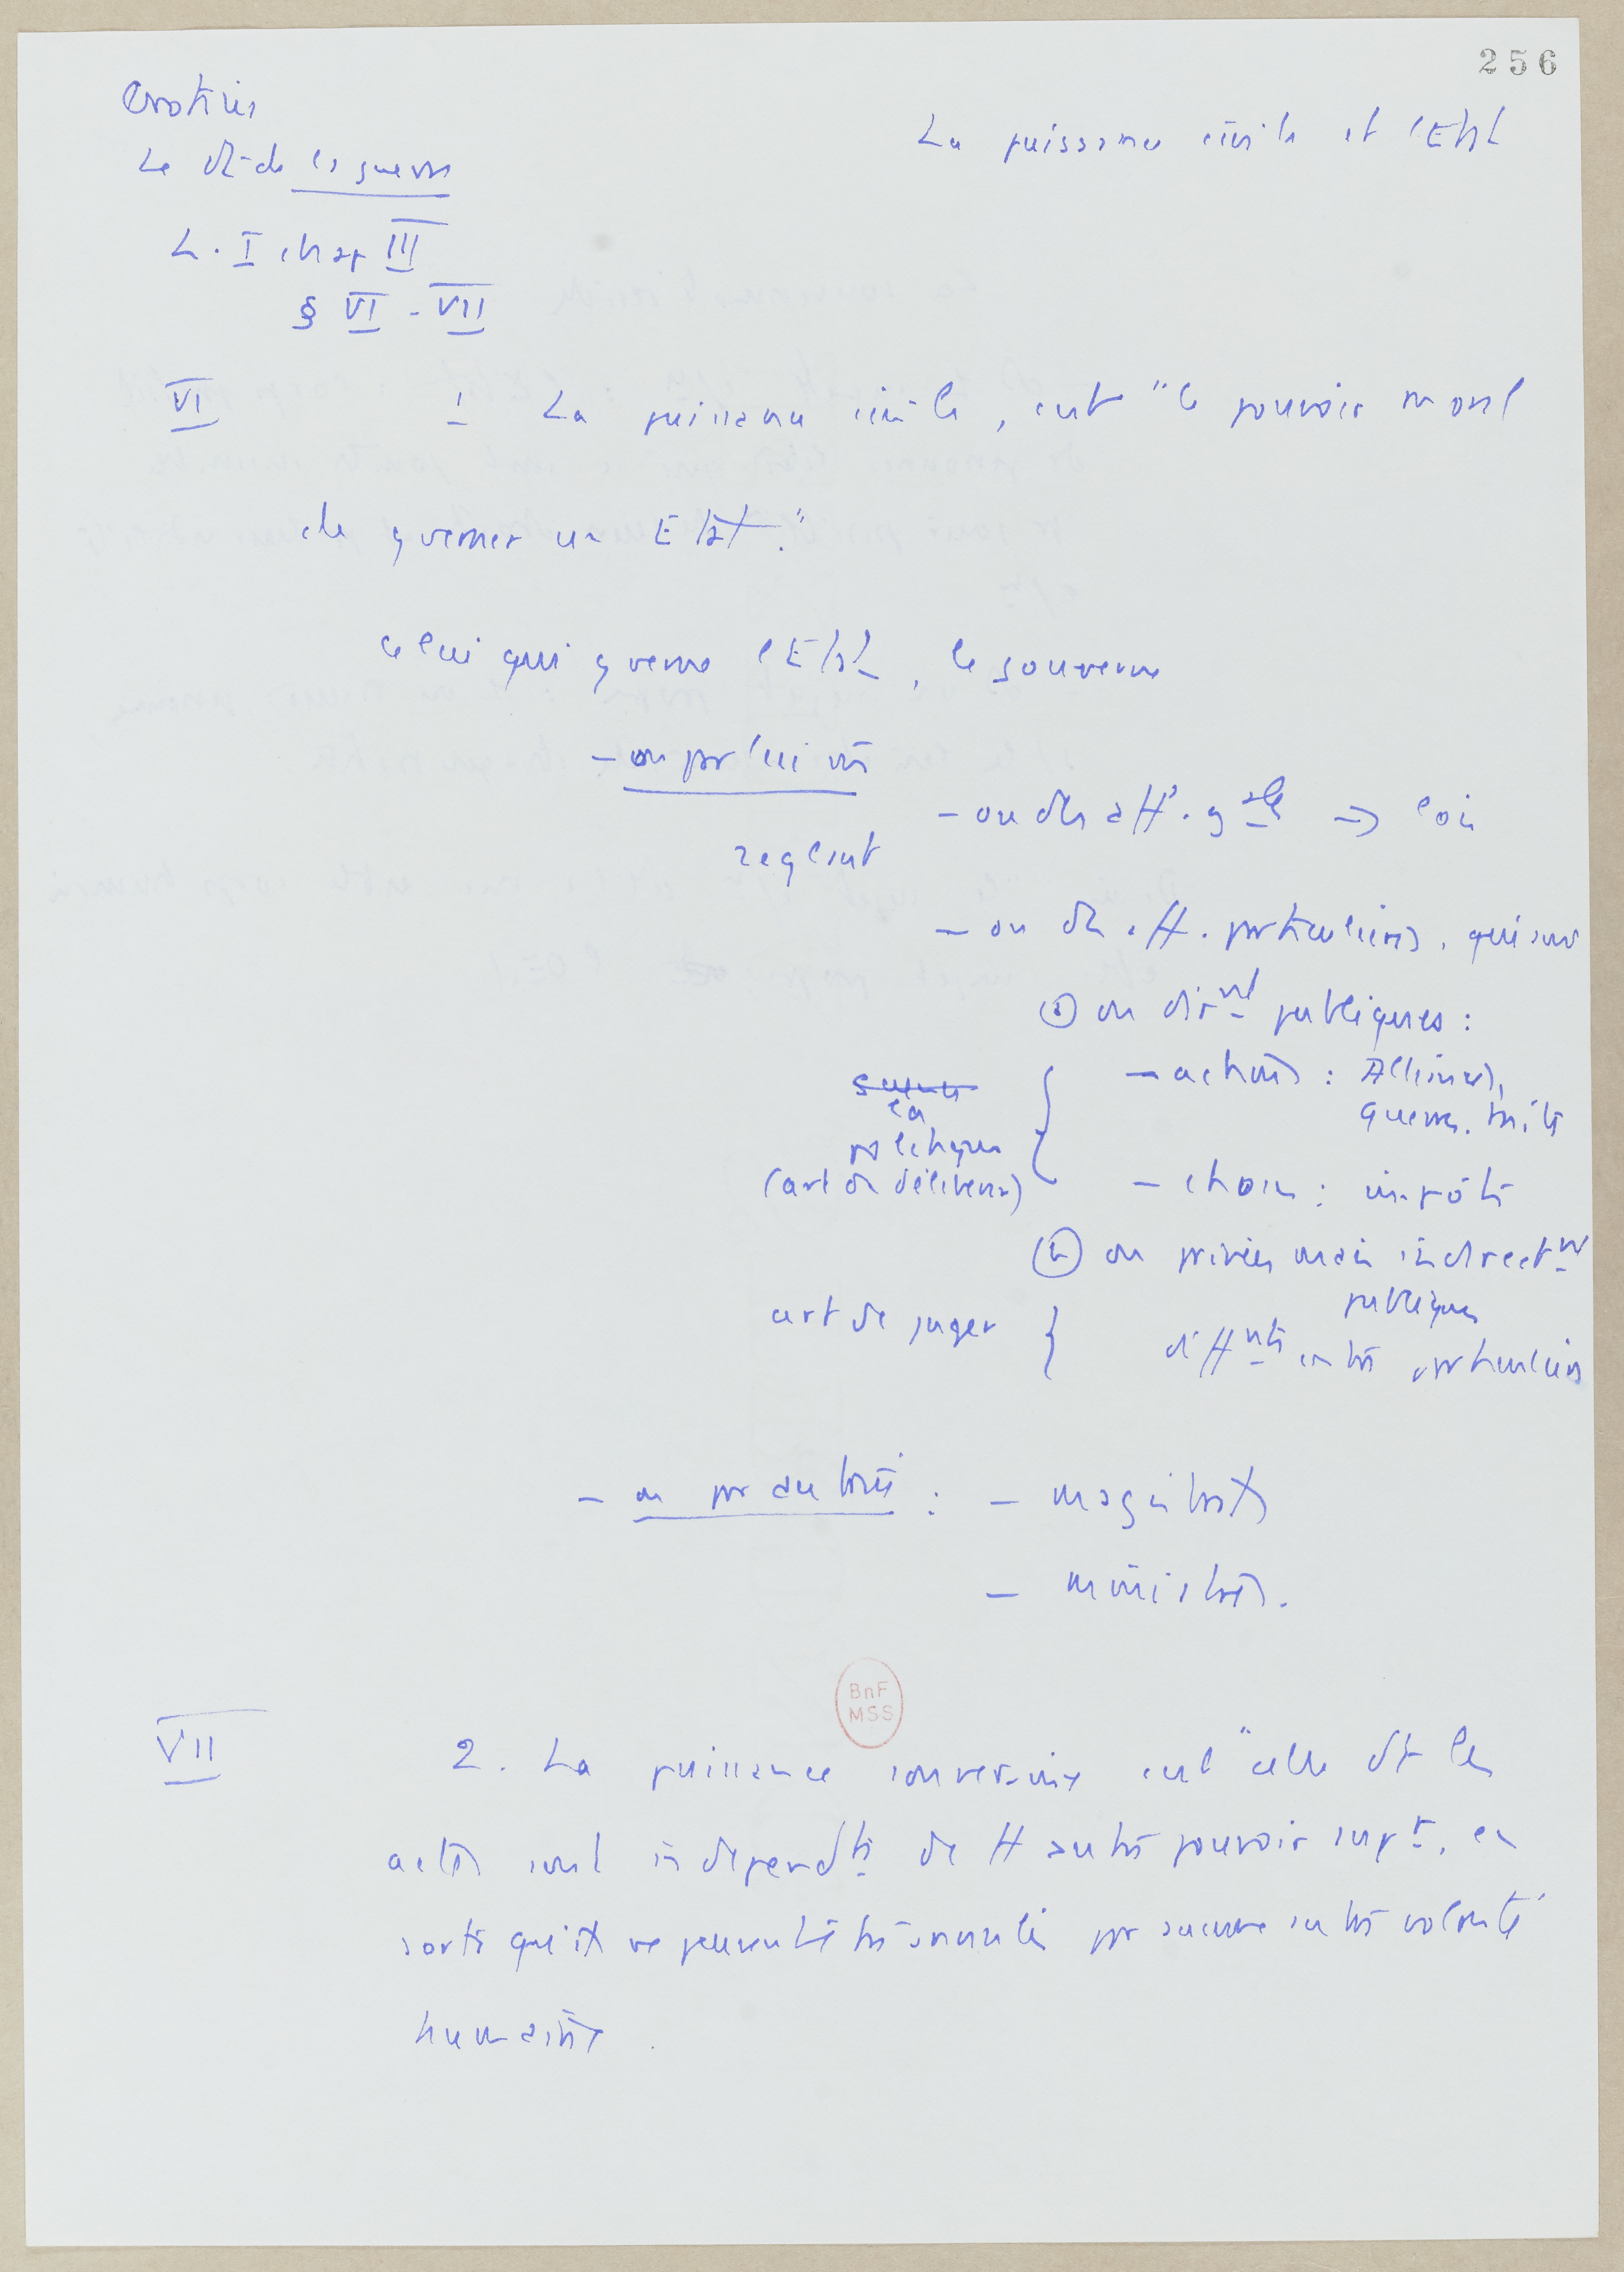 256
Grotius
La puissance civile et l'Etat
Le dt de la guerre
L. I chap III
§ VI - VII
VI 1 La puissance civile, c'est "le pouvoir moral
de gouverner un Etat."
celui qui gouverne l'Etat, le gouverne
- ou par lui m̄
- ou des aff. gales → lois
reglant
- ou des aff. particulières, qui sont
ⓐ ou dirnt publiques :
- actions : Alliances,
guerres, traités
la
politique
(art de délibérer)
- choses : impôts
ⓑ ou privées mais indirectnt
publiques
art de juger } diffnts entre particuliers
- ou par autrui : - magistrats
- ministres.
BnF
MSS
VII 2. La puissance souveraine c'est "celle dt les
actes sont independts de tt autre pouvoir supr, en
sorte qu'ils ne peuvent être annulés par aucune autre volonté
humaine.